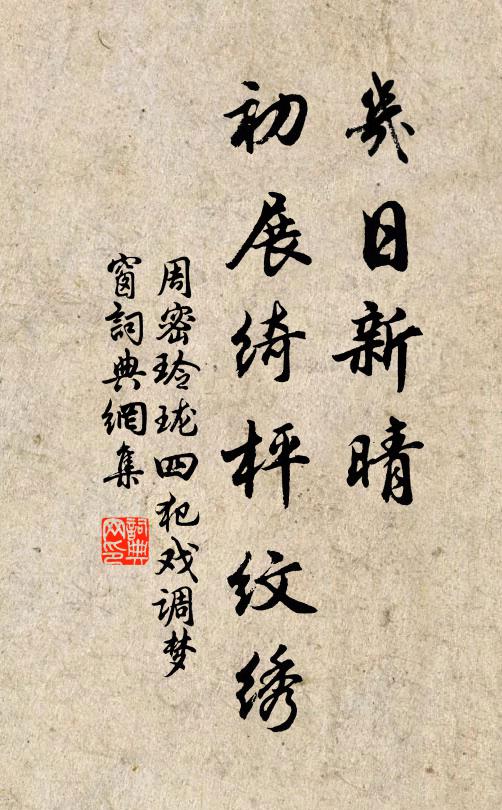 幾日新晴
初展绮枰纹绣
周密玲珑四犯戏调梦
窗詞典網集
詞典
网印